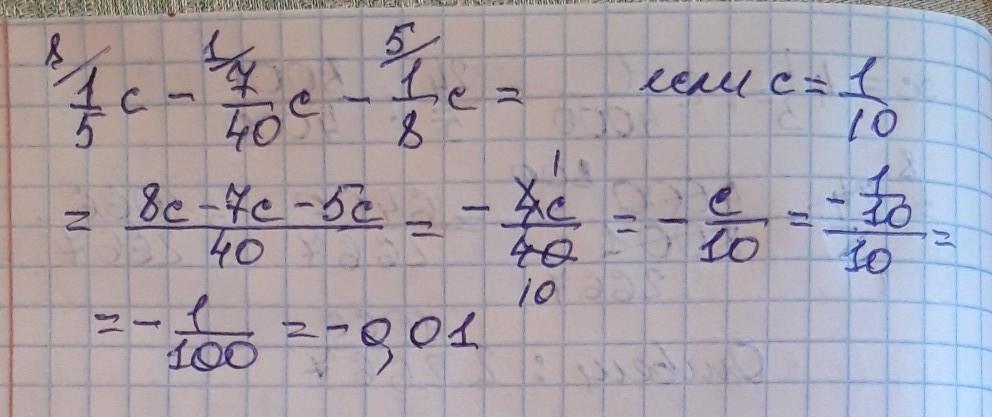 8/ 1/5 c - 1/ 7/40 c - 5/ 1/8 c = если c = 1/10
= (8c - 7c - 5c)/40 = - 4c/40 1 10 = - c/10 = (- 1/10)/10 =
= - 1/100 = - 0,01